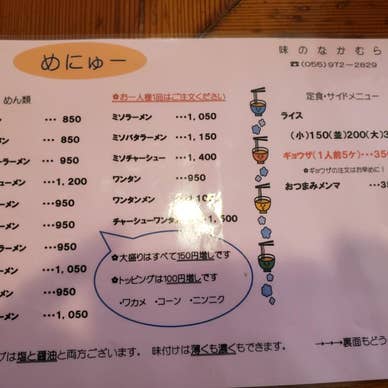 めにゅー
味のなかむら
☎(055)972-2829
めん類
メン ･･･ 850
メン ･･･ 850
ラーメン ･･･950
シューメン ･･･1,200
ーメン ･･･950
ーメン ･･･950
ーメン ･･･1,050
メン ･･･950
ーメン ･･･1,050
✿お一人様1品はご注文ください
ミソラーメン ･･･1,050
ミソバタラーメン ･･･1,150
ミソチャーシュー ･･･1,400
ワンタン ･･･950
ワンタンメン
チャーシューワンタン
✿大盛りはすべて150円増しです
✿トッピングは100円増しです
・ワカメ ・コーン ・ニンニク
定食・サイドメニュー
ライス
(小)150(並)200(大)3
ギョウザ(1人前5ケ)･･･35
✿ギョウザの注文はお早めに!
おつまみメンマ ･･･35
プは塩と醤油と両方ございます。 味付けは薄くも濃くもできます。
→→→裏面もどう